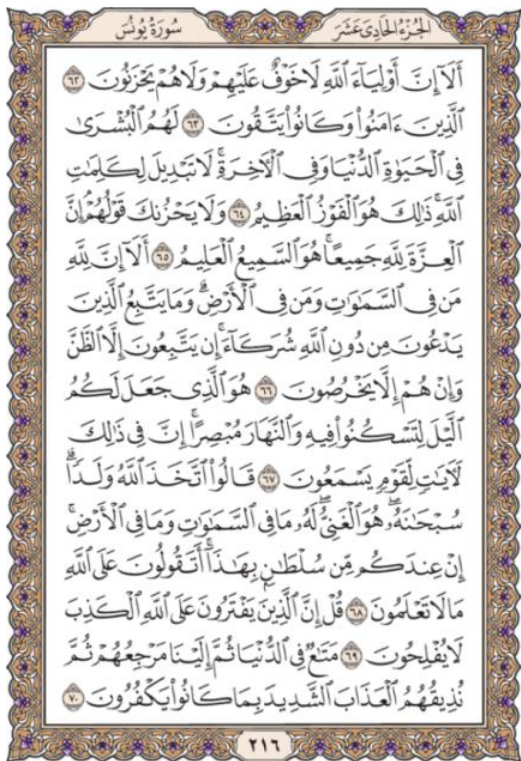 الجُزْءُ الحَادِى عَشَرَ
سُورَةُ يُونُسَ
أَلَآ إِنَّ أَوْلِيَآءَ ٱللَّهِ لَا خَوْفٌ عَلَيْهِمْ وَلَا هُمْ يَحْزَنُونَ ٦٢
ٱلَّذِينَ ءَامَنُوا۟ وَكَانُوا۟ يَتَّقُونَ ٦٣ لَهُمُ ٱلْبُشْرَىٰ
فِى ٱلْحَيَوٰةِ ٱلدُّنْيَا وَفِى ٱلْءَاخِرَةِ ۚ لَا تَبْدِيلَ لِكَلِمَٰتِ
ٱللَّهِ ۚ ذَٰلِكَ هُوَ ٱلْفَوْزُ ٱلْعَظِيمُ ٦٤ وَلَا يَحْزُنكَ قَوْلُهُمْ ۘ إِنَّ
ٱلْعِزَّةَ لِلَّهِ جَمِيعًا ۚ هُوَ ٱلسَّمِيعُ ٱلْعَلِيمُ ٦٥ أَلَآ إِنَّ لِلَّهِ
مَن فِى ٱلسَّمَٰوَٰتِ وَمَن فِى ٱلْأَرْضِ ۗ وَمَا يَتَّبِعُ ٱلَّذِينَ
يَدْعُونَ مِن دُونِ ٱللَّهِ شُرَكَآءَ ۚ إِن يَتَّبِعُونَ إِلَّا ٱلظَّنَّ
وَإِنْ هُمْ إِلَّا يَخْرُصُونَ ٦٦ هُوَ ٱلَّذِى جَعَلَ لَكُمُ
ٱلَّيْلَ لِتَسْكُنُوا۟ فِيهِ وَٱلنَّهَارَ مُبْصِرًا ۚ إِنَّ فِى ذَٰلِكَ
لَءَايَٰتٍ لِّقَوْمٍ يَسْمَعُونَ ٦٧ قَالُوا۟ ٱتَّخَذَ ٱللَّهُ وَلَدًا ۗ
سُبْحَٰنَهُۥ ۖ هُوَ ٱلْغَنِىُّ ۖ لَهُۥ مَا فِى ٱلسَّمَٰوَٰتِ وَمَا فِى ٱلْأَرْضِ ۚ
إِنْ عِندَكُم مِّن سُلْطَٰنٍۭ بِهَٰذَآ ۚ أَتَقُولُونَ عَلَى ٱللَّهِ
مَا لَا تَعْلَمُونَ ٦٨ قُلْ إِنَّ ٱلَّذِينَ يَفْتَرُونَ عَلَى ٱللَّهِ ٱلْكَذِبَ
لَا يُفْلِحُونَ ٦٩ مَتَٰعٌ فِى ٱلدُّنْيَا ثُمَّ إِلَيْنَا مَرْجِعُهُمْ ثُمَّ
نُذِيقُهُمُ ٱلْعَذَابَ ٱلشَّدِيدَ بِمَا كَانُوا۟ يَكْفُرُونَ ٧٠
٢١٦